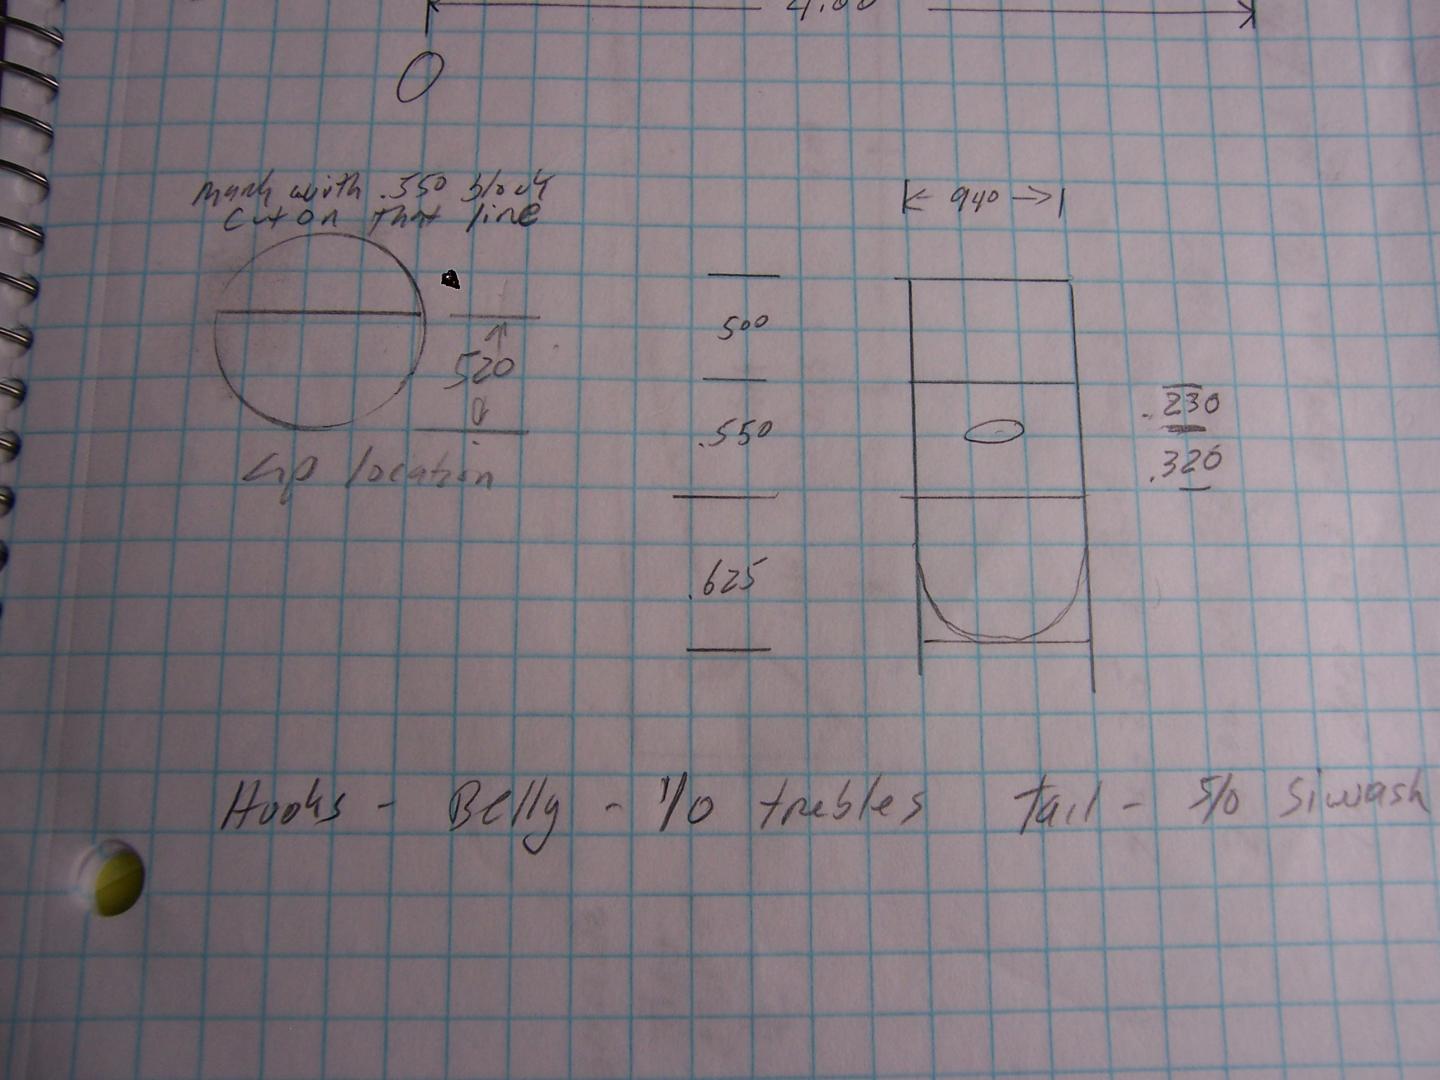 4.00
0
Mark with .550 block
cut on that line
940
500
520
.230
.550
.320
Lip location
.625
Hooks - Belly - 1/0 trebles Tail - 5/0 Siwash